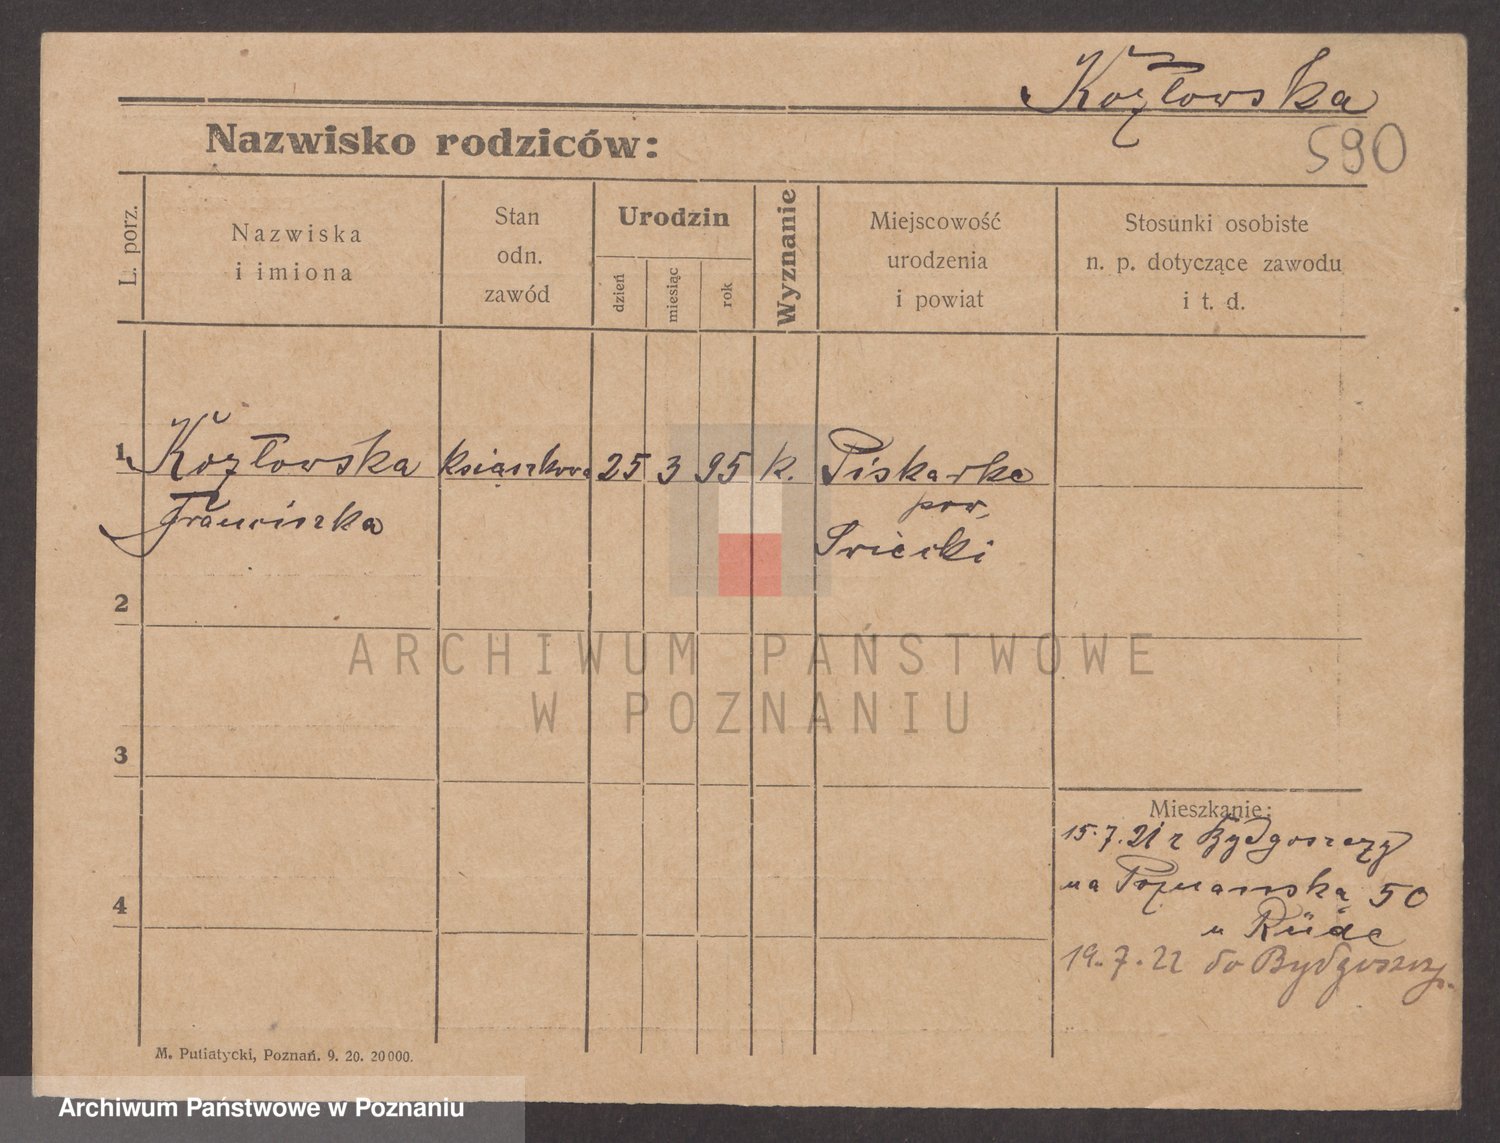 Kozłowska
590
Nazwisko rodziców:
L. porz.
Nazwiska
i imiona
Stan
odn.
zawód
Urodzin
dzień
miesiąc
rok
Wyznanie
Miejscowość
urodzenia
i powiat
Stosunki osobiste
n. p. dotyczące zawodu
i t. d.
1 Kozłowska książkowa 25 3 95 k. Piskarke
Franciszka
pow.
Świecki
2
ARCHIWUM PAŃSTWOWE
W POZNANIU
3
Mieszkanie:
15.7.21 z Bydgoszczy
na Poznańską 50
u
4
19.7.22 do Bydgoszczy.
M. Putiatycki, Poznań. 9. 20. 20000.
Archiwum Państwowe w Poznaniu